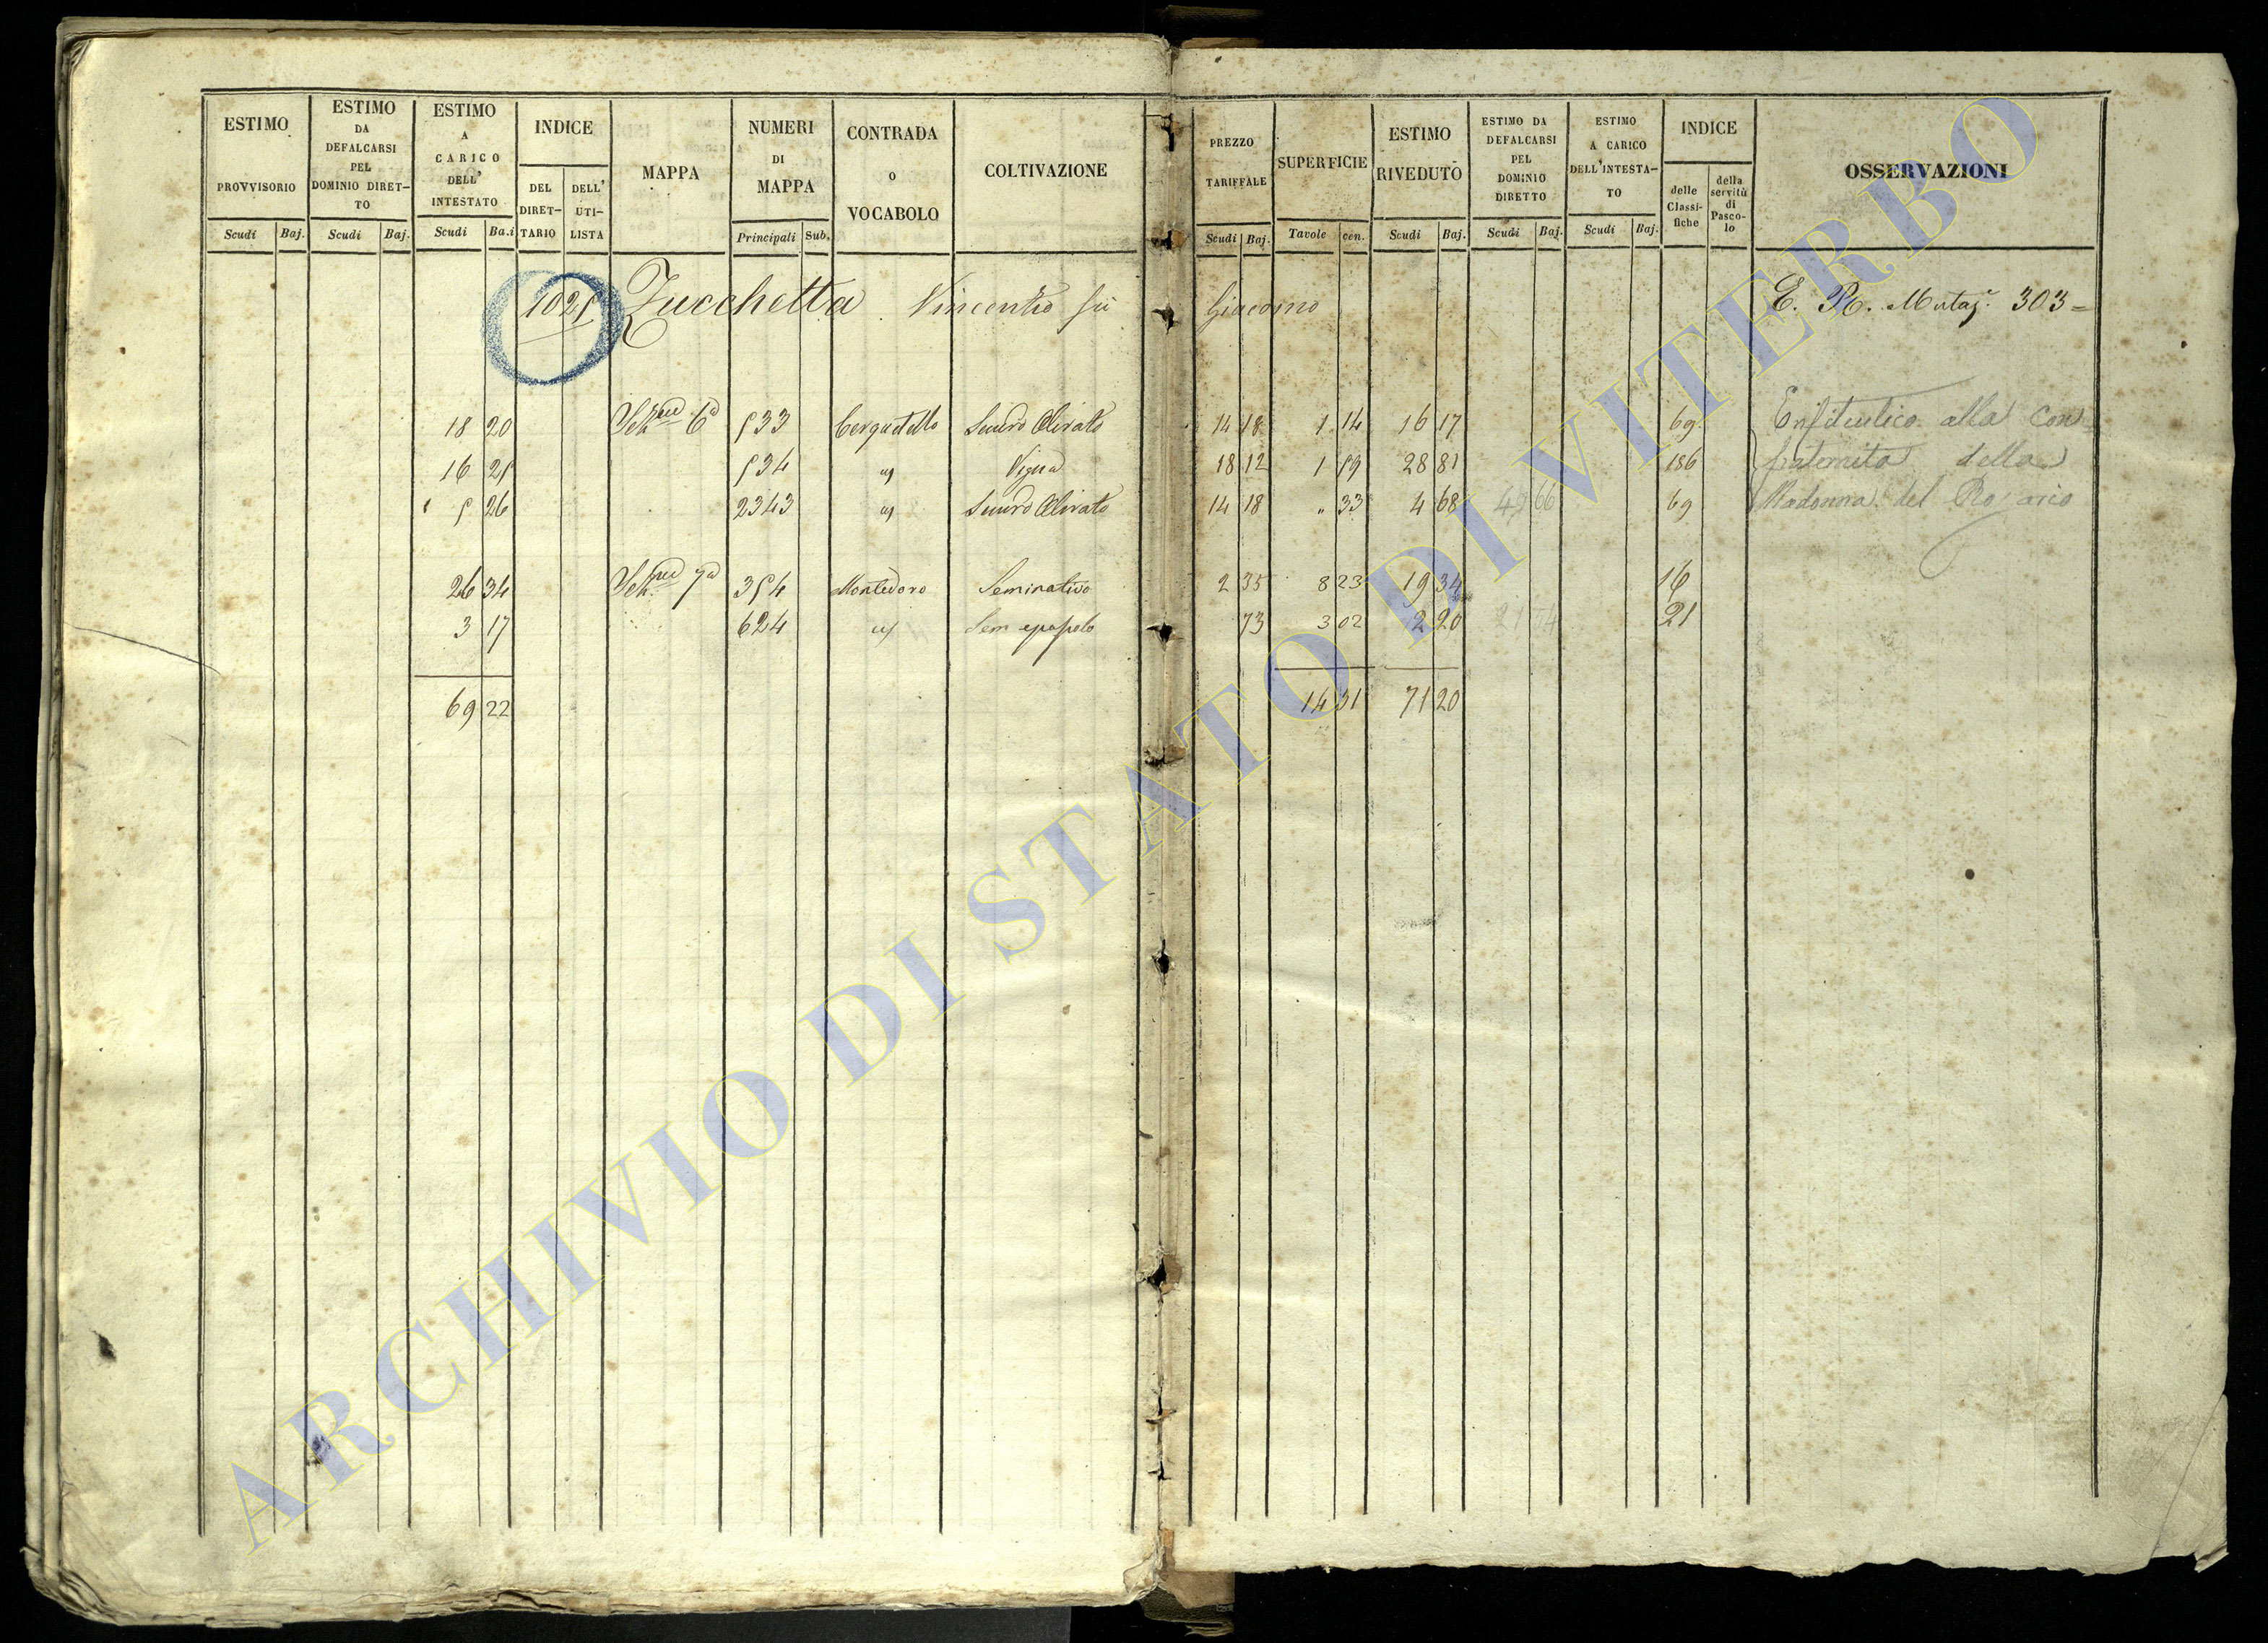 ESTIMO PROVVISORIO
Scudi Baj.
ESTIMO DA DEFALCARSI PEL DOMINIO DIRET-TO
Scudi Baj.
ESTIMO A CARICO DELL' INTESTATO
Scudi Ba.i
INDICE
DEL DIRET-TARIO
DELL' UTI-LISTA
MAPPA
NUMERI DI MAPPA
Principali Sub.
CONTRADA O VOCABOLO
COLTIVAZIONE
PREZZO TARIFFALE
Scudi Baj.
SUPERFICIE
Tavole cen.
ESTIMO RIVEDUTO
Scudi Baj.
ESTIMO DA DEFALCARSI PEL DOMINIO DIRETTO
Scudi Baj.
ESTIMO A CARICO DELL'INTESTA-TO
Scudi Baj.
INDICE
delle Classi-fiche
della servitù di Pasco-lo
OSSERVAZIONI
1025 Zucchetta Vincenzo fu Giacomo E. R. Mutaz. 303=
18 20 6a 533 Cerquetello Olivato 14 18 1 14 16 17 69 Enfiteutico alla Con
16 25 534 " Vigna 18 12 1 59 28 81 186 fraternita della
5 26 2343 " Olivato 14 18 " 33 4 68 49 66 69 Madonna del Rosario
26 34 7a 354 Montedoro Seminativo 2 35 8 23 19 34 16
3 17 624 " Sem 73 3 02 2 20 21 54 21
69 22 14 31 71 20
ARCHIVIO DI STATO DI VITERBO